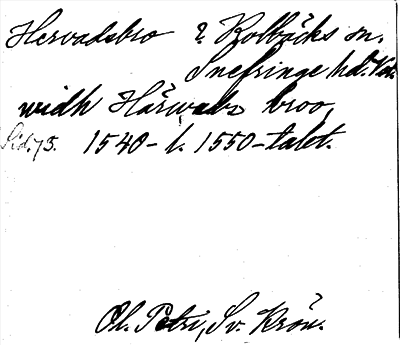 Hervadsbro ? Kolbäcks sn.
Snefringe hd. Vm.
widh Härwadz broo.
Sid. 73. 1540- l. 1550-talet.
Ol. Petri, Sv. Krön.